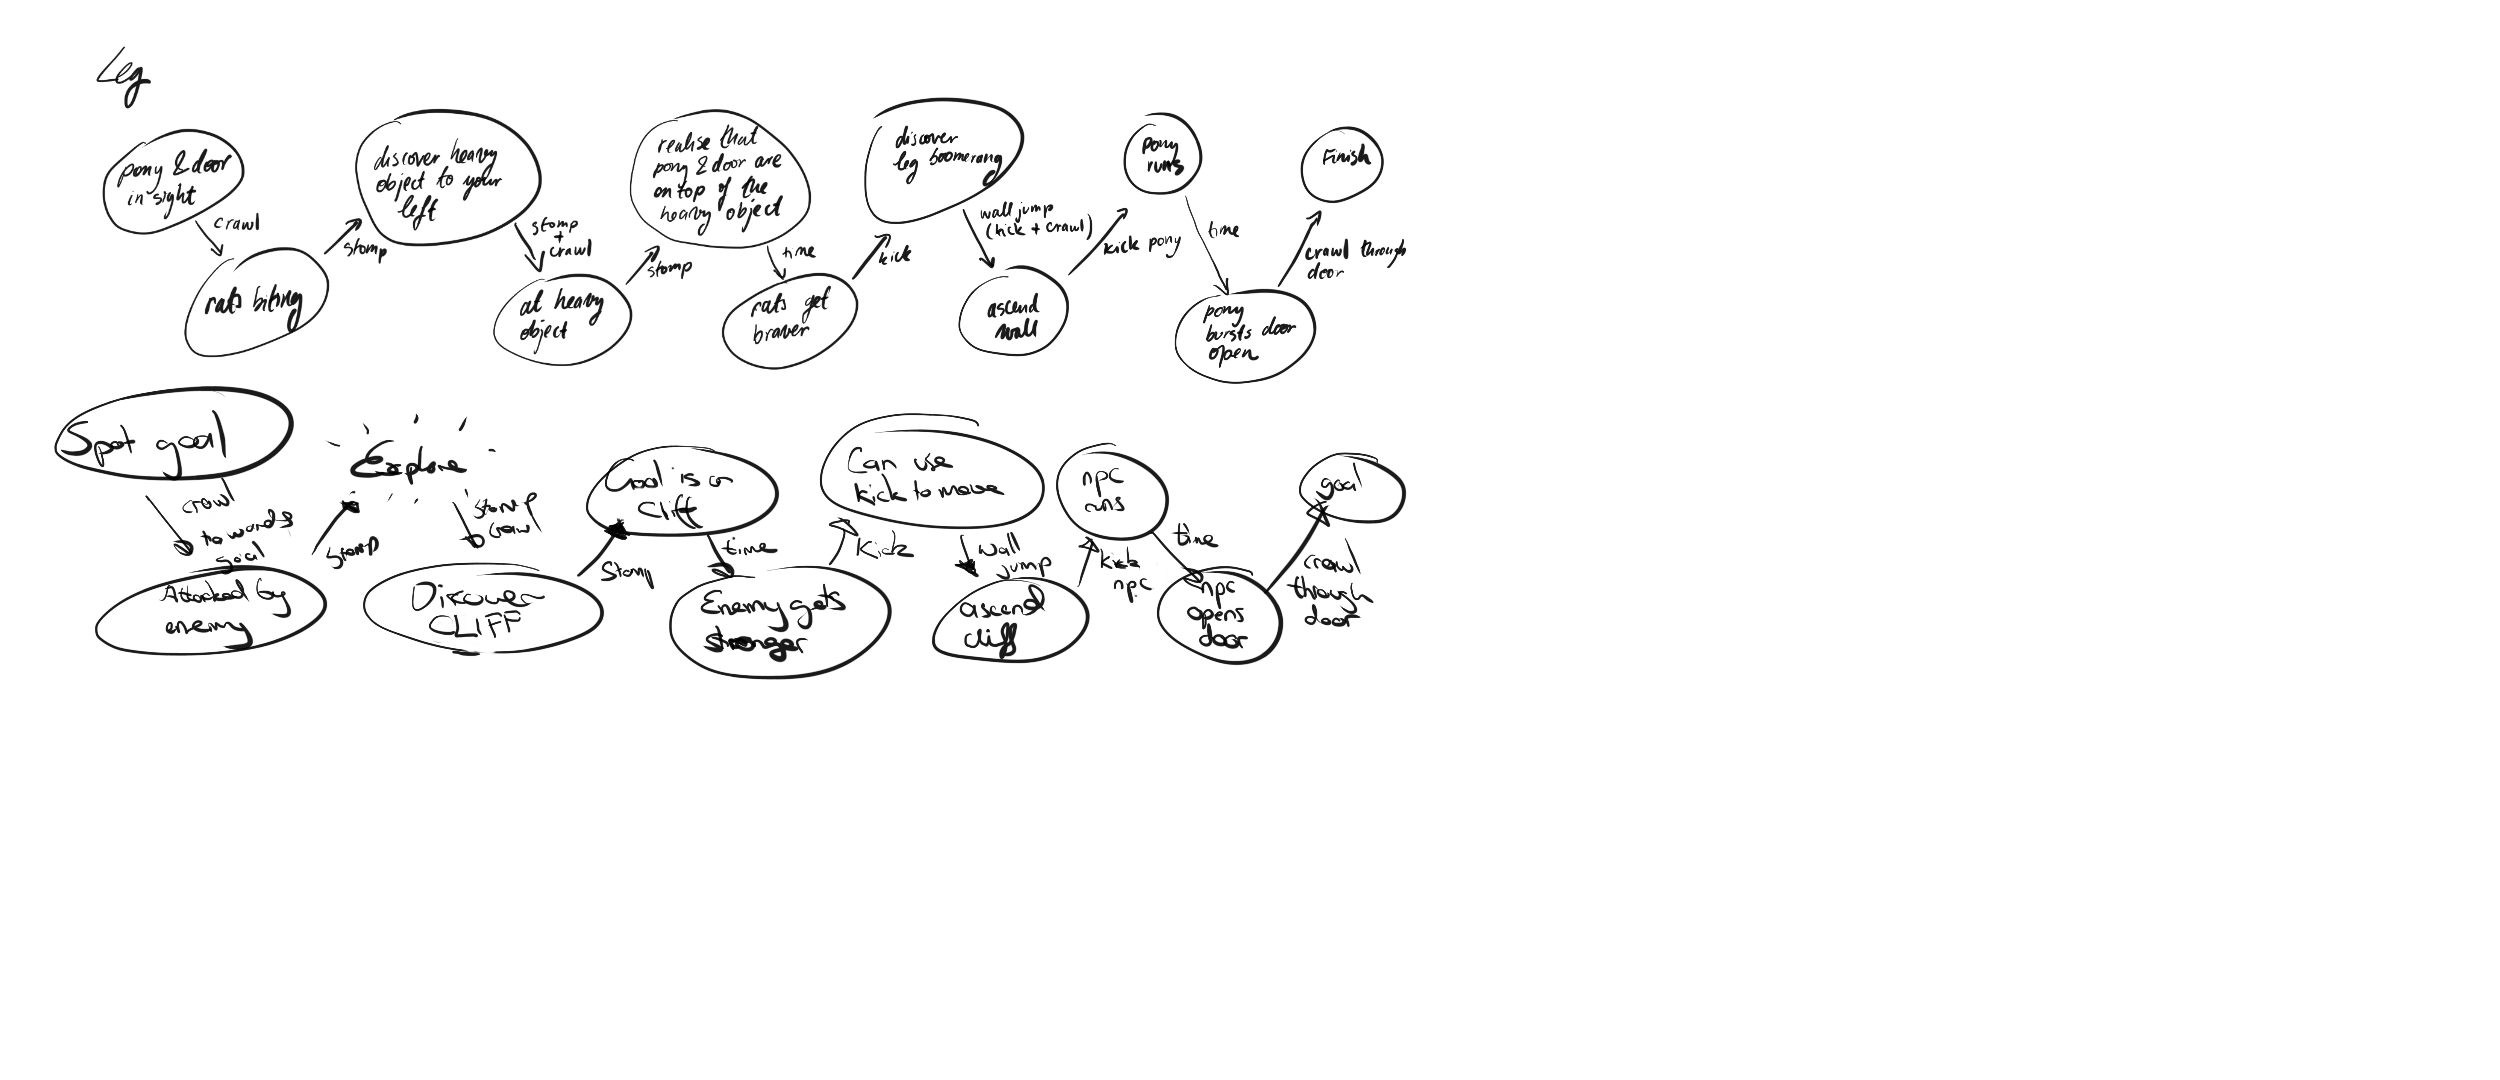 Leg
pony & door
in sight
crawl
rats biting
stomp
discover heavy
object to your
left
stomp
+
crawl
at heavy
object
stomp
realise that
pony & door are
on top of the
heavy object
time
rats get
braver
kick
discover
leg boomerang
wall jump
(kick + crawl)
ascend
wall
kick pony
pony
runs
time
pony
bursts door
open
crawl through
door
Finish
Spot goal
crawl
towards
goal
Attacked by
enemy
stomp
Explore
stomp
crawl
Discover
CLIFF
Stomp
Goal is on
Cliff
time
Enemy gets
stronger
Kick
Can use
kick to move
wall
jump
ascend
cliff
kick
npc
npc
runs
time
npc
opens
door
crawl
through
door
goal